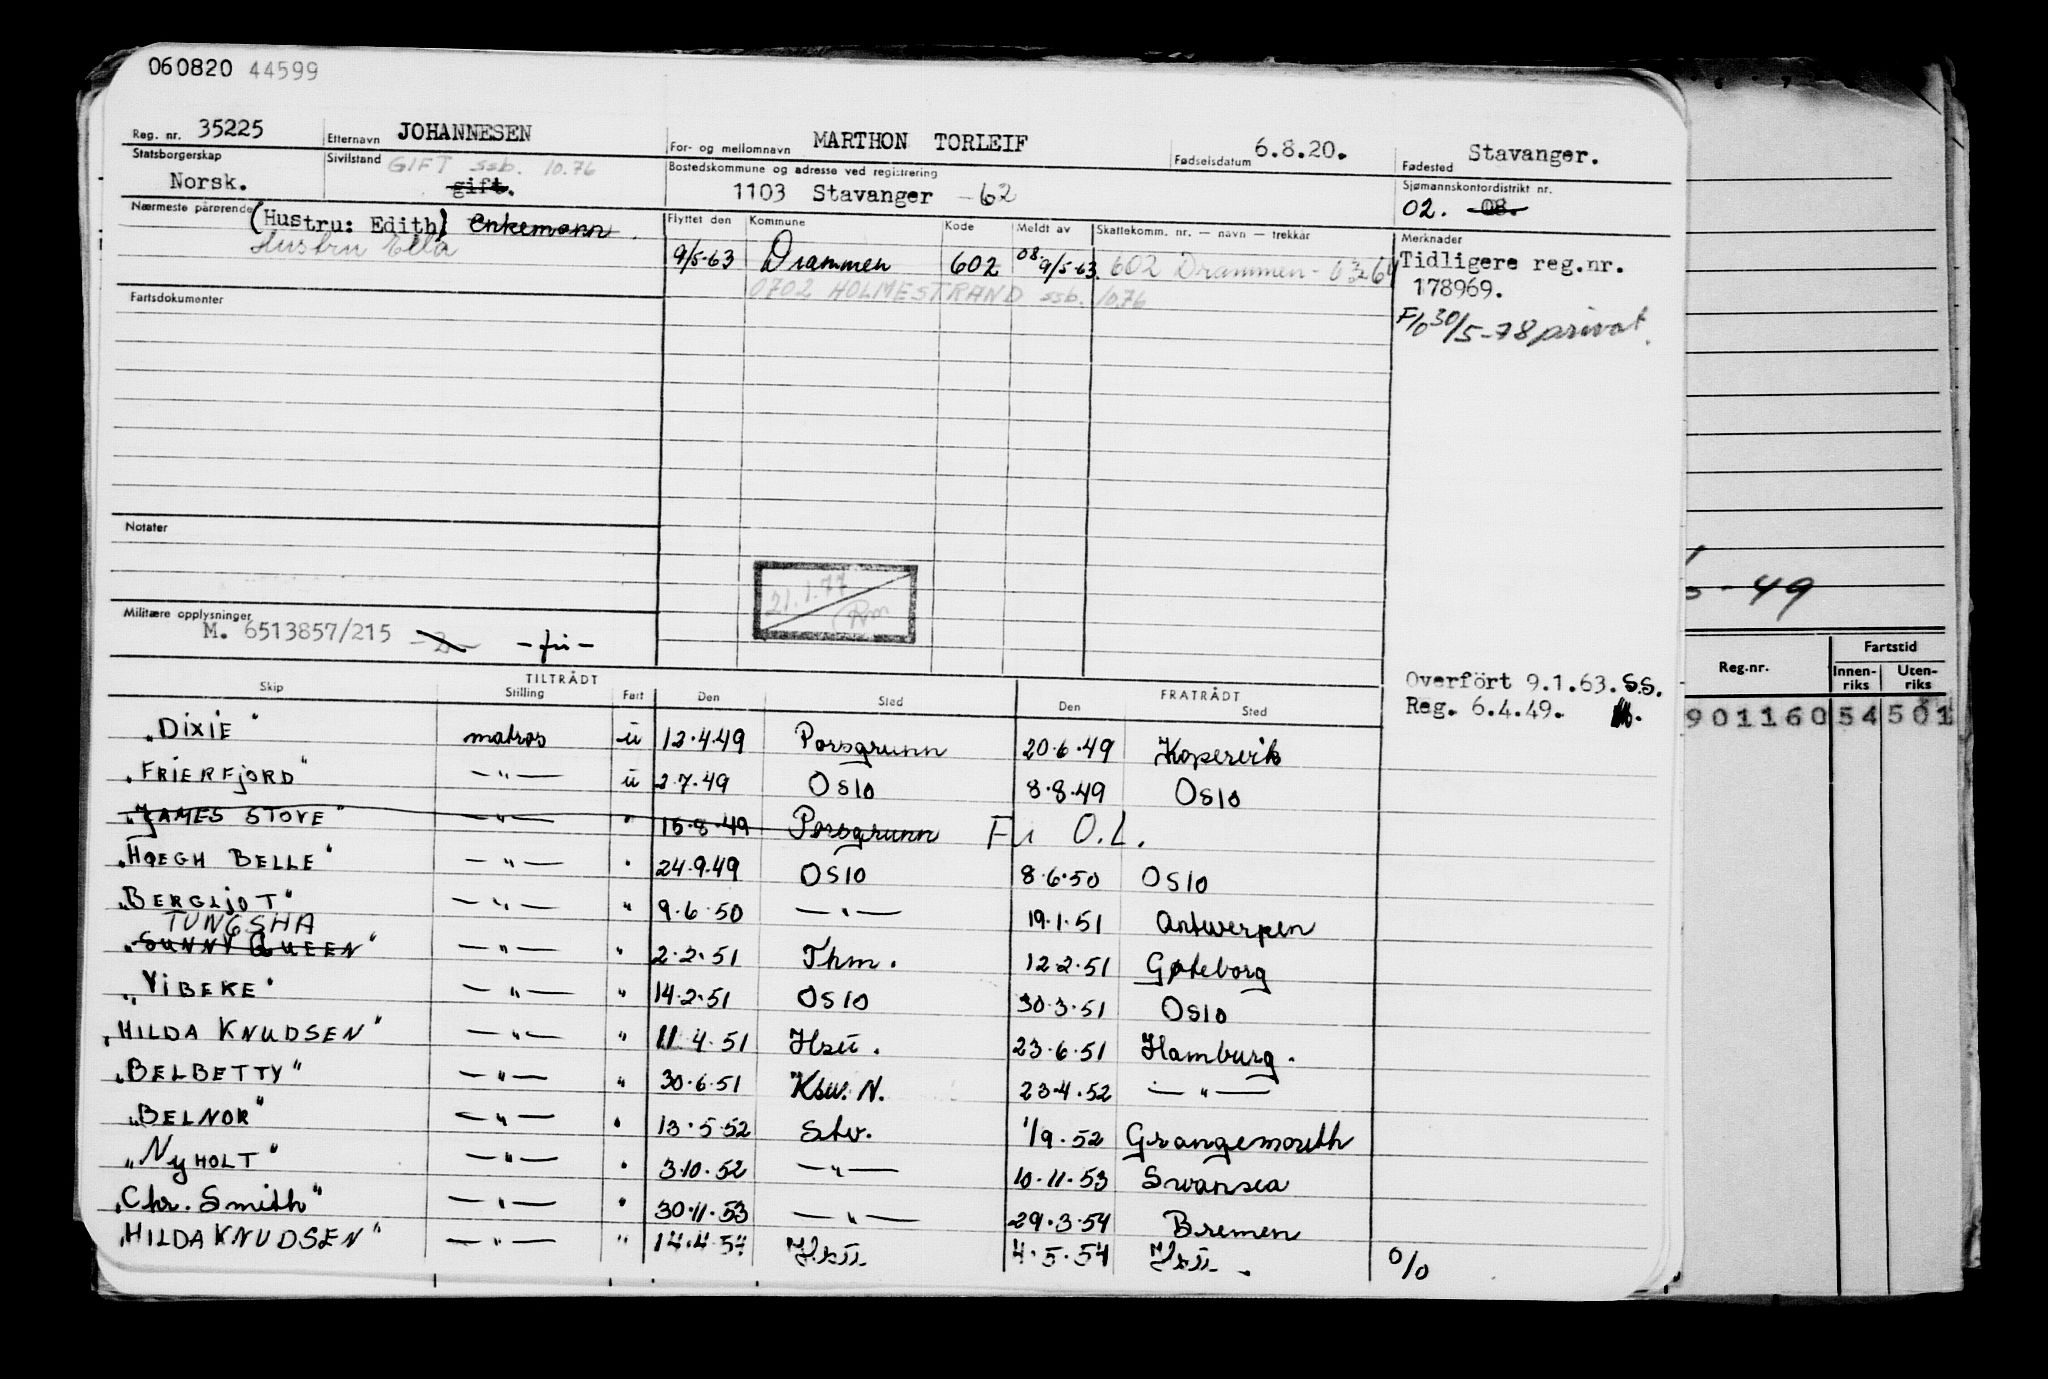 060820 44599
Reg. nr. 35225 Etternavn JOHANNESEN For- og mellomnavn MARTHON TORLEIF Fødselsdatum 6.8.20. Fødested Stavanger.
Statsborgerskap Norsk. Sivilstand GIFT ssb. 10.76 gift. Bostedskommune og adresse ved registrering 1103 Stavanger -62 Sjømannskontordistrikt nr. 02. 08.
Nærmeste pårørende (Hustru: Edith) Enkemann. Flyttet den Kommune Kode Meldt av Skattekomm. nr. — navn — trekkår Merknader
Hustru Ella 9/5-63 Drammen 602 08 9/5-63. 602 Drammen - Tidligere reg.nr.
0702 HOLMESTRAND ssb. 10.76 178969.
Fartsdokumenter
F/b 30/5-78 privat.
Notater
21.1.77
Militære opplysninger
M. 6513857/215 -fri-
-49
Reg.nr. Fartstid
Innen-riks Uten-riks
901160 54 501
Overfört 9.1.63. S.S.
Reg. 6.4.49.
TILTRÅDT FRATRÅDT
Skip Stilling Fart Den Sted Den Sted
"DIXIE" matros ū 12.4.49 Porsgrunn 20.6.49 Kopervik
"FRIERFJORD" —"— ū 2.7.49 Oslo 8.8.49 Oslo
"JAMES STOVE" —"— " 15.8.49 Porsgrunn F.i O.L.
"HØEGH BELLE" —"— " 24.9.49 Oslo 8.6.50 Oslo
"BERGLJOT" —"— " 9.6.50 —"— 19.1.51 Antwerpen
TUNGSHA
"SUNNY QUEEN" —"— " 2.2.51 Thm. 12.2.51 Gøteborg
"VIBEKE" —"— " 14.2.51 Oslo 30.3.51 Oslo
"HILDA KNUDSEN" —"— " 11.4.51 Hsū. 23.6.51 Hamburg.
"BELBETTY" —"— " 30.6.51 Ksu. N. 23.4.52 —"—
"BELNOR" —"— " 13.5.52 Stv. 1/9.52 Grangemouth
"NyHOLT" —"— " 3.10.52 —"— 10.11.53 Swansea
"Chr. Smith" —"— " 30.11.53 —"— 29.3.54 Bremen
"HILDA KNUDSEN" —"— " 14.4.54 Hsū 4.5.54 Hsū. o/o